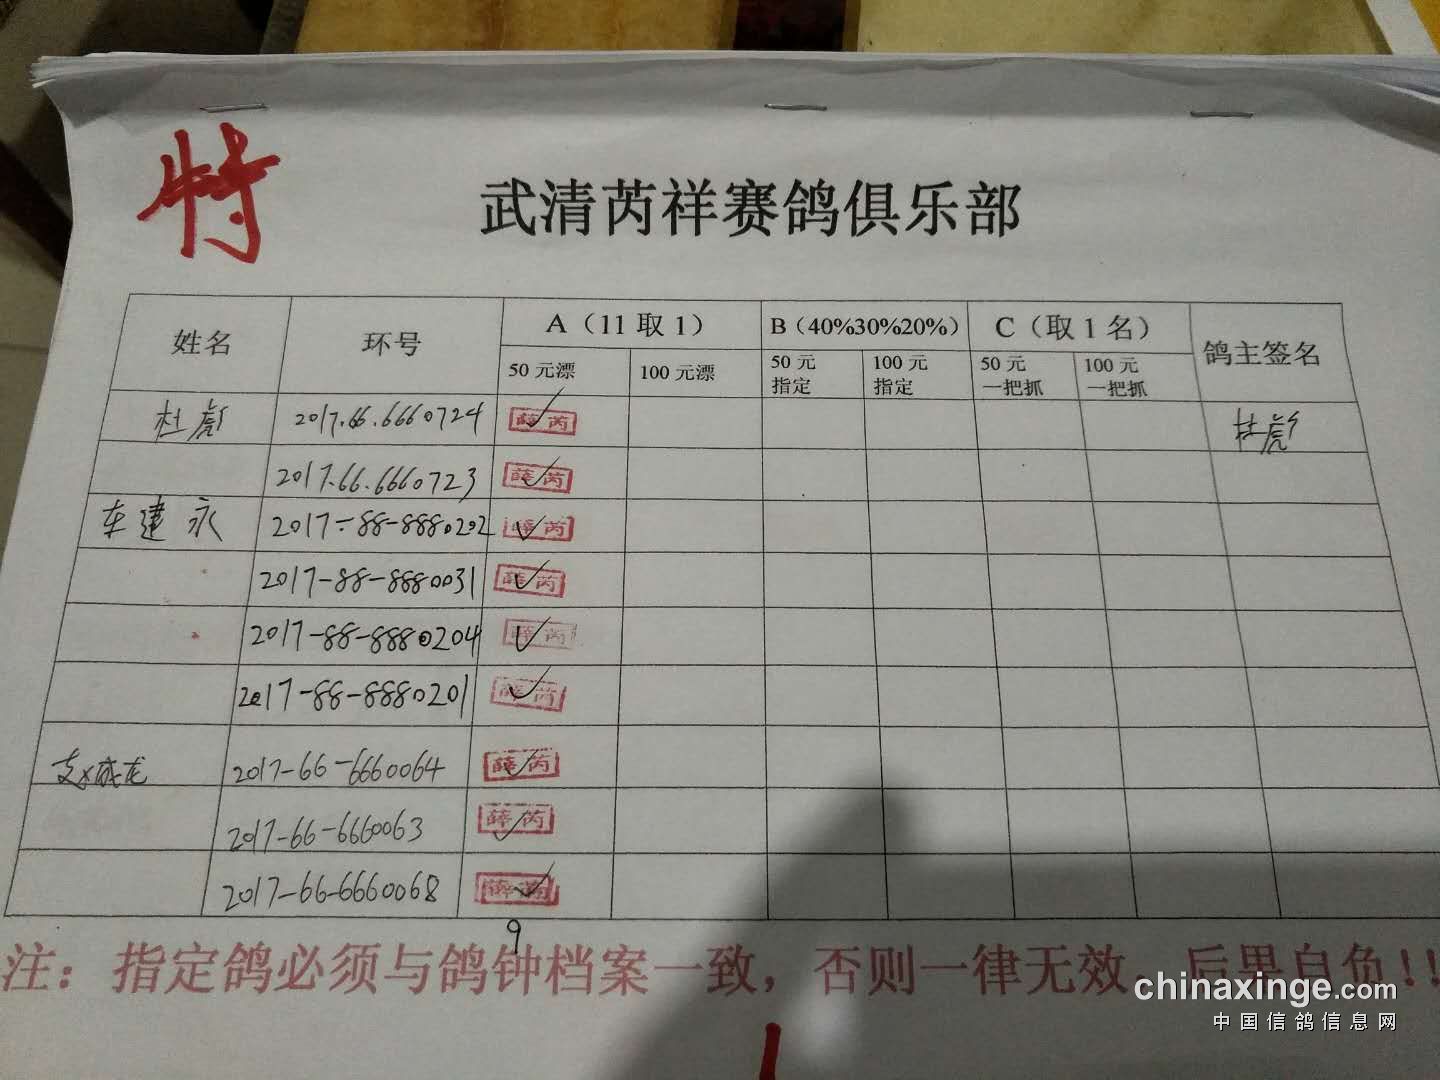 特
武清芮祥赛鸽俱乐部
姓名 环号 A（11取1） B（40%30%20%） C（取1名） 鸽主签名
50元漂 100元漂 50元指定 100元指定 50元一把抓 100元一把抓
杜彪 2017.66.6660724 薛芮 杜彪
2017.66.6660723 薛芮
车建永 2017-88-8880202 薛芮
2017-88-8880031 薛芮
2017-88-8880204 薛芮
2017-88-8880201 薛芮
2017-66-6660064 薛芮
2017-66-6660063 薛芮
2017-66-6660068 薛芮
9
注：指定鸽必须与鸽钟档案一致，否则一律无效，后果自负!!
chinaxinge.com
中国信鸽信息网